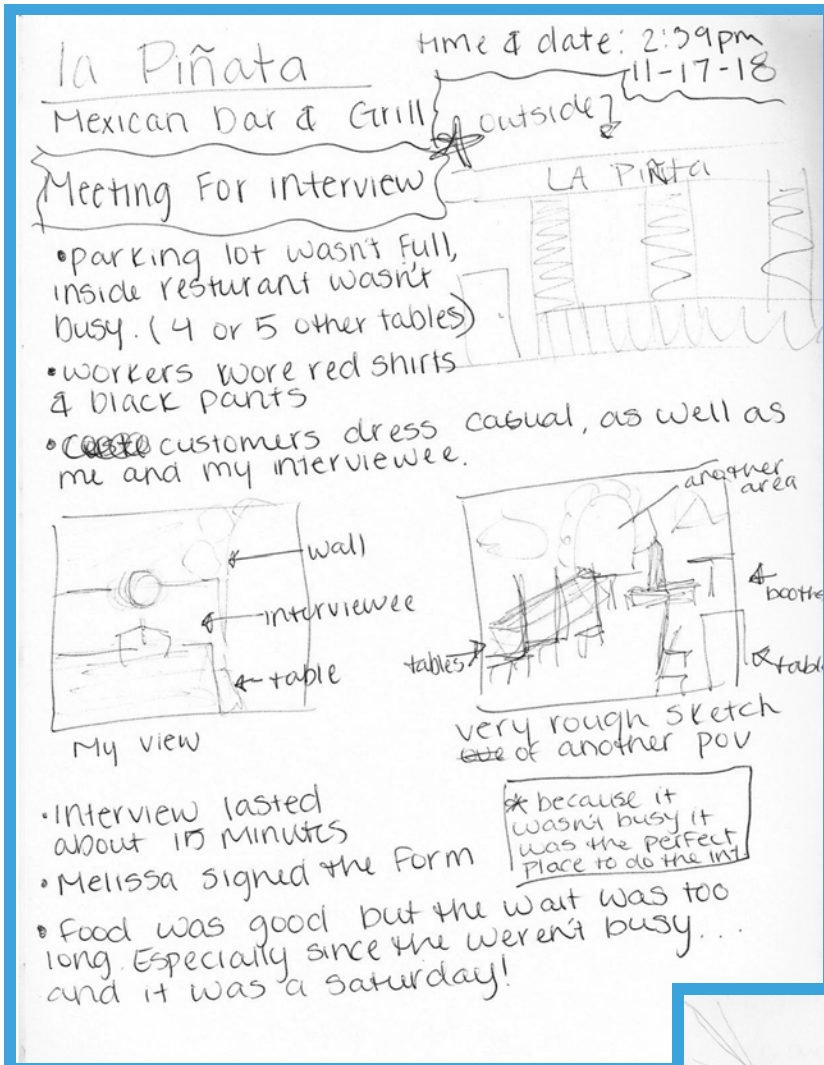 la Piñata
time & date: 2:39pm
11-17-18
Mexican bar & Grill
outside
Meeting For interview
LA PIÑAta
• parking lot wasn't full,
inside resturant wasn't
busy. (4 or 5 other tables)
• workers wore red shirts
& black pants
• customers dress casual, as well as
me and my interviewee.
wall
interviewee
table
My view
another
area
booths
tables
table
very rough sketch
of another pov
• Interview lasted
about 15 minutes
• Melissa signed the Form
* because it
wasn't busy it
was the perfect
place to do the int
• Food was good but the wait was too
long. Especially since the weren't busy...
and it was a saturday!